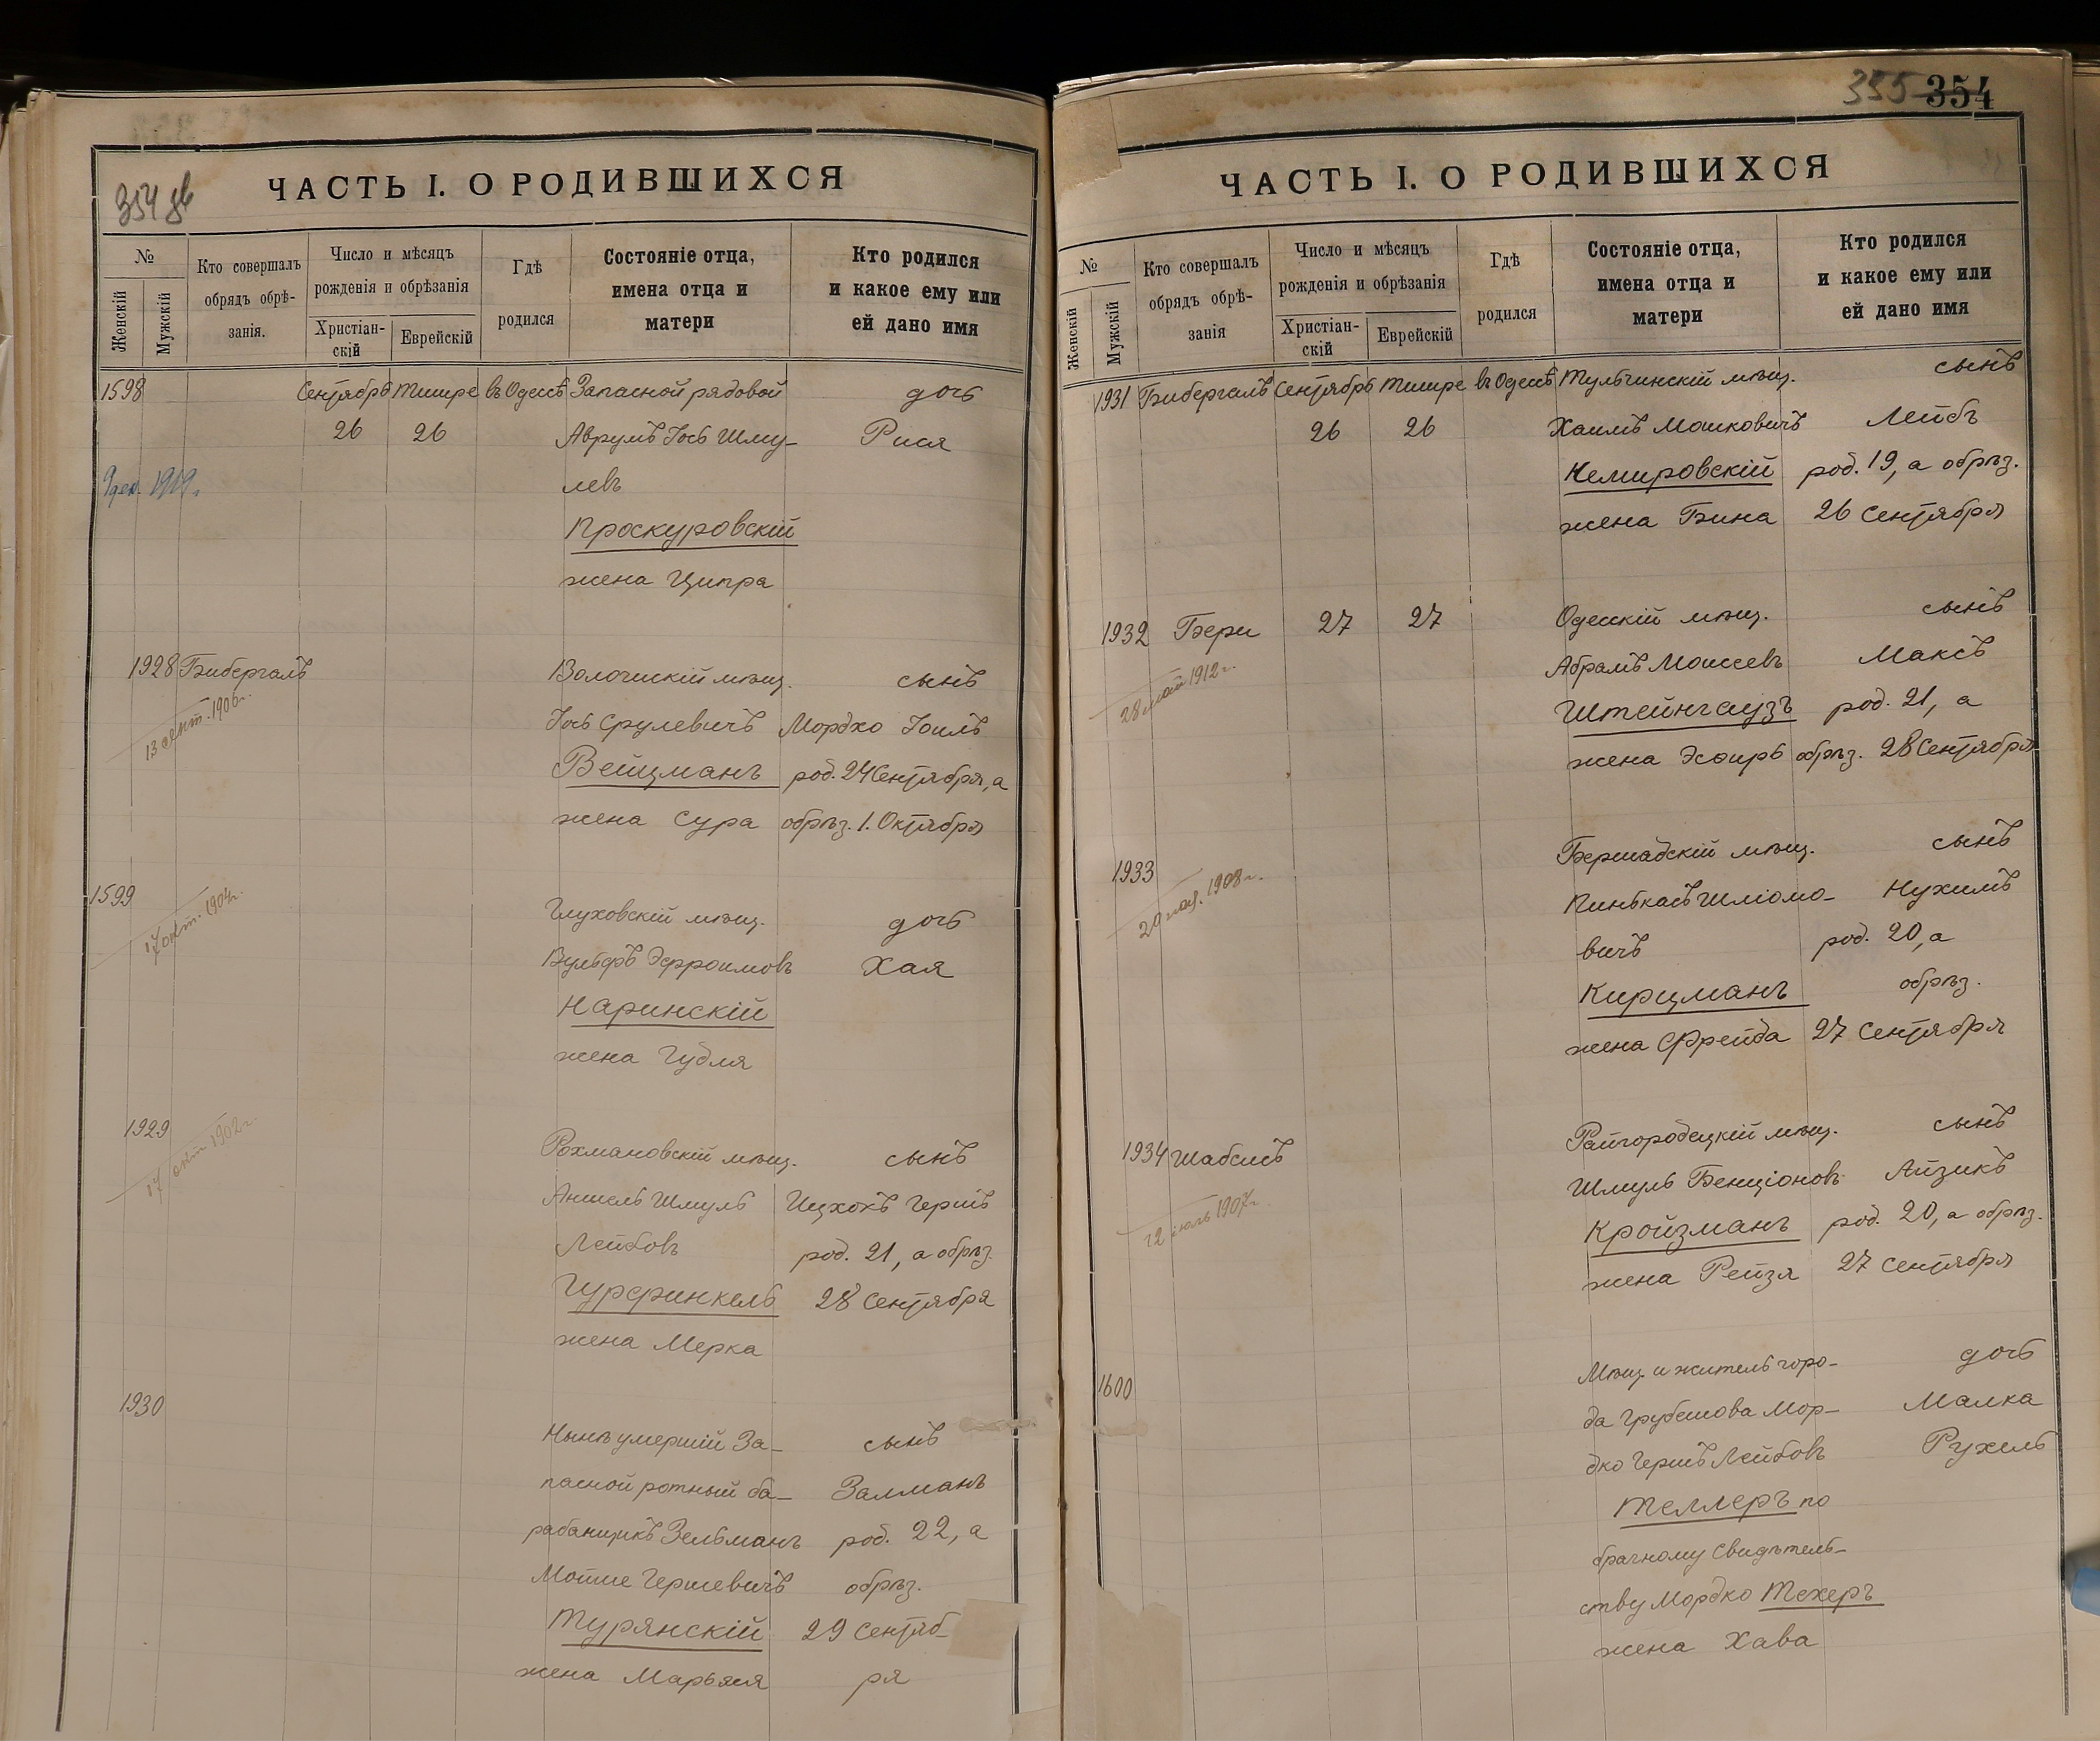 354 об
ЧАСТЬ I. О РОДИВШИХСЯ
№
Женскій
Мужскій
Кто совершалъ
обрядъ обрѣ-
занія.
Число и мѣсяцъ
рожденія и обрѣзанія
Христіан-
скій
Еврейскій
Гдѣ
родился
Состояніе отца,
имена отца и
матери
Кто родился
и какое ему или
ей дано имя
1598 Сентябрь Тишре въ Одессѣ Запасной рядовой дочь
26 26 Аврумъ Іось Шму- Рися
левъ
9 дек. 1919 г.
Проскуровскій
жена Ципра
1928 Бибергалъ Волочискій мѣщ. сынъ
13 1906 г.
Іось Срулевичъ Мордко Іоиль
Вейцманъ род. 24 Сентября, а
жена Сура обрѣз. 1. Октября
1599 Глуховскій мѣщ. дочь
17 окт. 1904 г.
Вульфъ Эфроимовъ Хая
Наринскій
жена Гудля
1929 Рохмановскій мѣщ. сынъ
17 окт 1902 г.
Аншель Шмуль Ицхокъ Гершъ
Лейбовъ род. 21, а обрѣз.
Гурфинкель 28 Сентября
жена Мерка
1930 Нынѣ умершій За- сынъ
пасной ротный ба- Залманъ
рабанщикъ Зельманъ род. 22, а
Мотие Гершевичъ обрѣз.
Турянскій 29 Сентяб-
жена Марьяся ря
355 354
ЧАСТЬ I. О РОДИВШИХСЯ
№
Женскій
Мужскій
Кто совершалъ
обрядъ обрѣ-
занія
Число и мѣсяцъ
рожденія и обрѣзанія
Христіан-
скій
Еврейскій
Гдѣ
родился
Состояніе отца,
имена отца и
матери
Кто родился
и какое ему или
ей дано имя
1931 Бибергалъ Сентябрь Тишре въ Одессѣ Тульчинскій мѣщ. сынъ
26 26 Хаимъ Мошковичъ Лейбъ
Немировскій род. 19, а обрѣз.
жена Бина 26 Сентября
1932 Бери 27 27 Одесскій мѣщ. сынъ
28 май 1912 г.
Абрамъ Моисеевъ Максъ
Штейнгаузъ род. 21, а
жена Эсфирь обрѣз. 28 Сентября
1933 Бершадскій мѣщ. сынъ
20 1908 г.
Пинькасъ Шліомо- Нухимъ
вичъ род. 20, а
Кирцманъ обрѣз.
жена Фрейда 27 Сентября
1934 Шабсисъ Райгородецкій мѣщ. сынъ
12 іюль 1907 г.
Шмуль Бенціоновъ Айзикъ
Кройзманъ род. 20, а обрѣз.
жена Рейзя 27 Сентября
1600 Мѣщ. и житель горо- дочь
да Грубешова Мор- Малка
дко Гершъ Лейбовъ Рухель
Теллеръ по
брачному Свидѣтель-
ству Мордко Техеръ
жена Хава